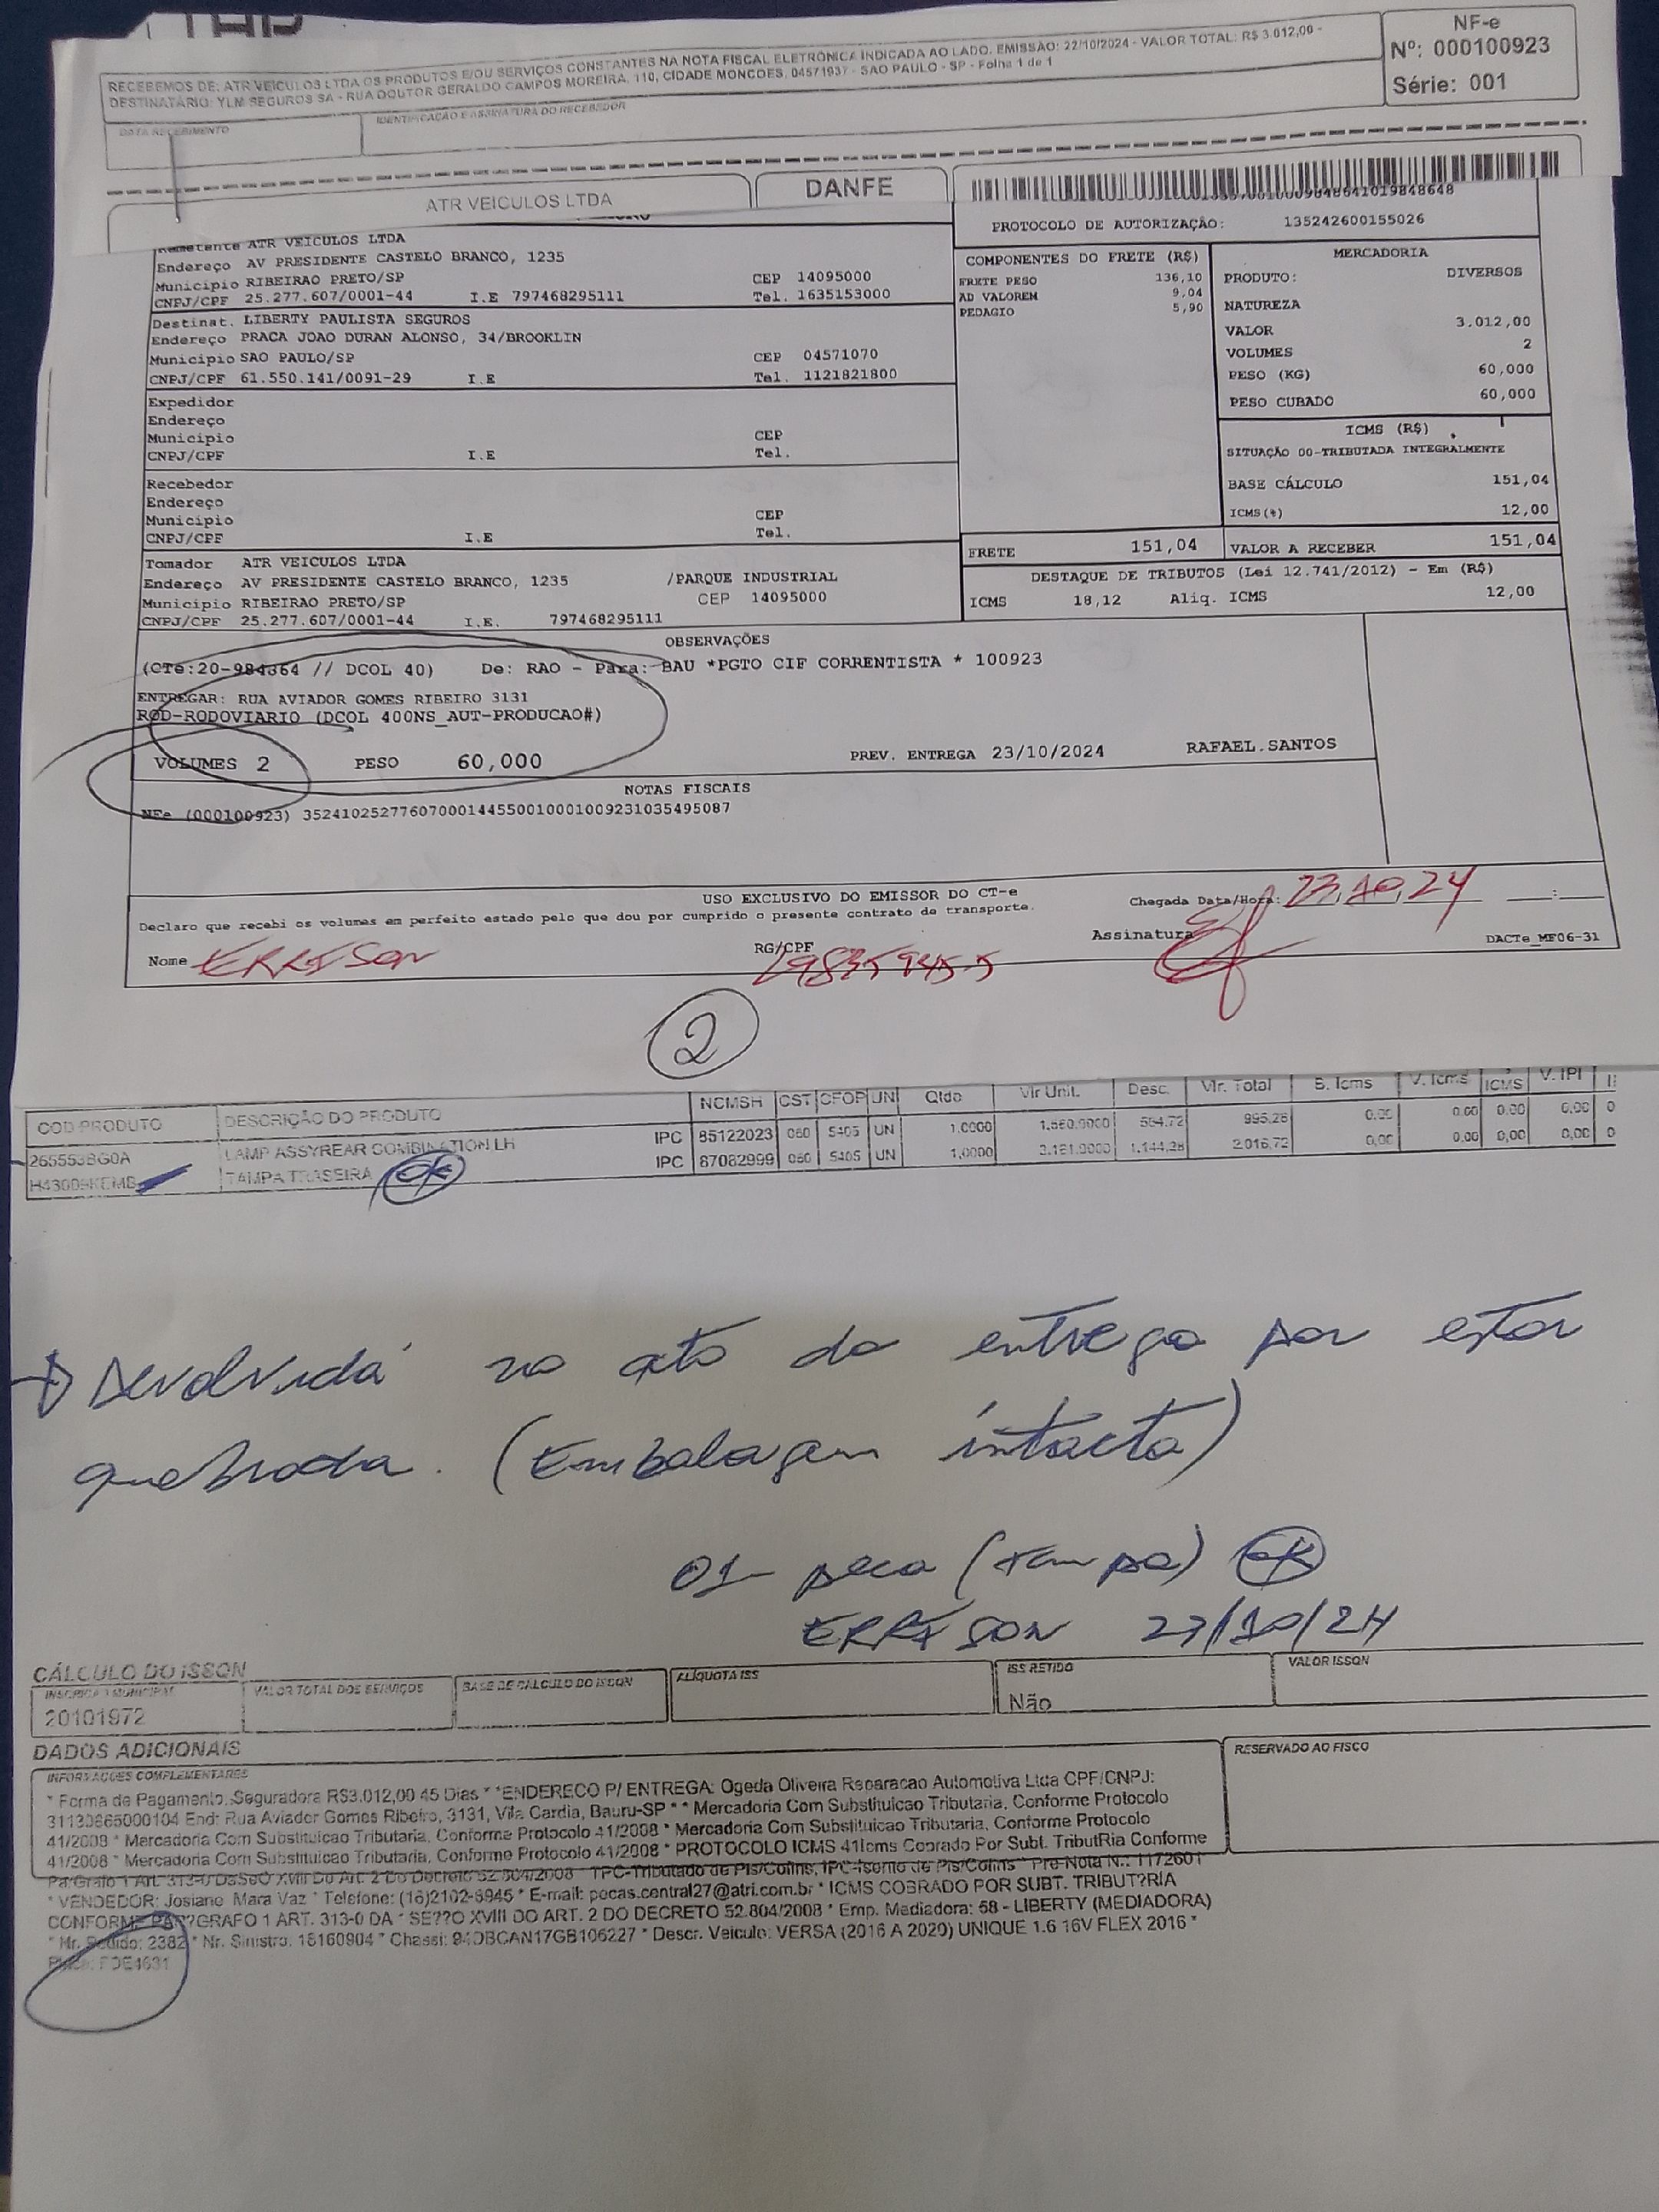 RECEBEMOS DE: ATR VEICULOS LTDA OS PRODUTOS E/OU SERVIÇOS CONSTANTES NA NOTA FISCAL ELETRÔNICA INDICADA AO LADO. EMISSÃO: 22/10/2024 - VALOR TOTAL: R$ 3.012,00 -
DESTINATÁRIO: YLM SEGUROS SA - RUA DOUTOR GERALDO CAMPOS MOREIRA, 110, CIDADE MONCOES, 04571937 - SAO PAULO - SP - Folha 1 de 1
NF-e
Nº: 000100923
Série: 001
DATA RECEBIMENTO
IDENTIFICAÇÃO E ASSINATURA DO RECEBEDOR
ATR VEICULOS LTDA
DANFE
PROTOCOLO DE AUTORIZAÇÃO: 135242600155026
Remetente ATR VEICULOS LTDA
Endereço AV PRESIDENTE CASTELO BRANCO, 1235
Municipio RIBEIRAO PRETO/SP CEP 14095000
CNPJ/CPF 25.277.607/0001-44 I.E 797468295111 Tel. 1635153000
Destinat. LIBERTY PAULISTA SEGUROS
Endereço PRACA JOAO DURAN ALONSO, 34/BROOKLIN
Municipio SAO PAULO/SP CEP 04571070
CNPJ/CPF 61.550.141/0091-29 I.E Tel. 1121821800
Expedidor
Endereço
Municipio CEP
CNPJ/CPF I.E Tel.
Recebedor
Endereço
Municipio CEP
CNPJ/CPF I.E Tel.
Tomador ATR VEICULOS LTDA
Endereço AV PRESIDENTE CASTELO BRANCO, 1235 /PARQUE INDUSTRIAL
Municipio RIBEIRAO PRETO/SP CEP 14095000
CNPJ/CPF 25.277.607/0001-44 I.E. 797468295111
COMPONENTES DO FRETE (R$)
FRETE PESO 136,10
AD VALOREM 9,04
PEDAGIO 5,90
MERCADORIA
PRODUTO: DIVERSOS
NATUREZA
VALOR 3.012,00
VOLUMES 2
PESO (KG) 60,000
PESO CUBADO 60,000
ICMS (R$)
SITUAÇÃO 00-TRIBUTADA INTEGRALMENTE
BASE CÁLCULO 151,04
ICMS(%) 12,00
FRETE 151,04 VALOR A RECEBER 151,04
DESTAQUE DE TRIBUTOS (Lei 12.741/2012) - Em (R$)
ICMS 18,12 Aliq. ICMS 12,00
OBSERVAÇÕES
(CTe:20-984364 // DCOL 40) De: RAO - Para: BAU *PGTO CIF CORRENTISTA * 100923
ENTREGAR: RUA AVIADOR GOMES RIBEIRO 3131
ROD-RODOVIARIO (DCOL 400NS_AUT-PRODUCAO#)
VOLUMES 2 PESO 60,000 PREV. ENTREGA 23/10/2024 RAFAEL.SANTOS
NOTAS FISCAIS
NFe (000100923) 35241025277607000144550010001009231035495087
USO EXCLUSIVO DO EMISSOR DO CT-e
Declaro que recebi os volumes em perfeito estado pelo que dou por cumprido o presente contrato de transporte.
Chegada Data/Hora: 23,10,24 :
Nome ERRISON RG/CPF Assinatura DACTe_MF06-31
2
COD PRODUTO DESCRIÇÃO DO PRODUTO NCMSH CST CFOP UN Qtdo Vlr Unit. Desc. Vlr. Total B. Icms V. Icms ICMS V. IPI
265553BG0A LAMP ASSYREAR COMBINATION LH IPC 85122023 060 5405 UN 1,0000 995,28 0,00 0,00 0,00 0,00 0
TAMPA TRASEIRA OK IPC 87082999 060 5405 UN 1,0000 1.144,28 2.016,72 0,00 0,00 0,00 0,00 0
Devolvida no ato da entrega por estar
quebrada. (Embalagem intacta)
01- peca (tampa) OK
ERRISON 23/10/24
CÁLCULO DO ISSQN
INSCRIÇÃO MUNICIPAL VALOR TOTAL DOS SERVIÇOS BASE DE CÁLCULO DO ISSQN ALÍQUOTA ISS ISS RETIDO VALOR ISSQN
20101972 Não
DADOS ADICIONAIS
INFORMAÇÕES COMPLEMENTARES
RESERVADO AO FISCO
* Forma de Pagamento: Seguradora R$3.012,00 45 Dias * *ENDERECO P/ ENTREGA: Ogeda Oliveira Reparacao Automotiva Ltda CPF/CNPJ:
31130865000104 End: Rua Aviador Gomes Ribeiro, 3131, Vila Cardia, Bauru-SP * * Mercadoria Com Substituicao Tributaria, Conforme Protocolo
41/2008 * Mercadoria Com Substituicao Tributaria, Conforme Protocolo 41/2008 * Mercadoria Com Substituicao Tributaria, Conforme Protocolo
41/2008 * Mercadoria Com Substituicao Tributaria, Conforme Protocolo 41/2008 * PROTOCOLO ICMS 41Icms Cobrado Por Subt. TributRia Conforme
Pa/Grafo 1 Art. 313-0 DaSeO XVIII Do Art. 2 Do Decreto 52.804/2008 * TPC-Tributado de Pis/Cofins, IPC-Isento de Pis/Cofins * Pre-Nota N.: 1172601
* VENDEDOR: Josiane Mara Vaz * Telefone: (16)2102-6945 * E-mail: pecas.central27@atri.com.br * ICMS COBRADO POR SUBT. TRIBUT?RIA
CONFORME PAR?GRAFO 1 ART. 313-0 DA * SE??O XVIII DO ART. 2 DO DECRETO 52.804/2008 * Emp. Mediadora: 58 - LIBERTY (MEDIADORA)
* Nr. Pedido: 2382 * Nr. Sinistro: 18160904 * Chassi: 94DBCAN17GB106227 * Descr. Veiculo: VERSA (2016 A 2020) UNIQUE 1.6 16V FLEX 2016 *
Placa: FDE4631